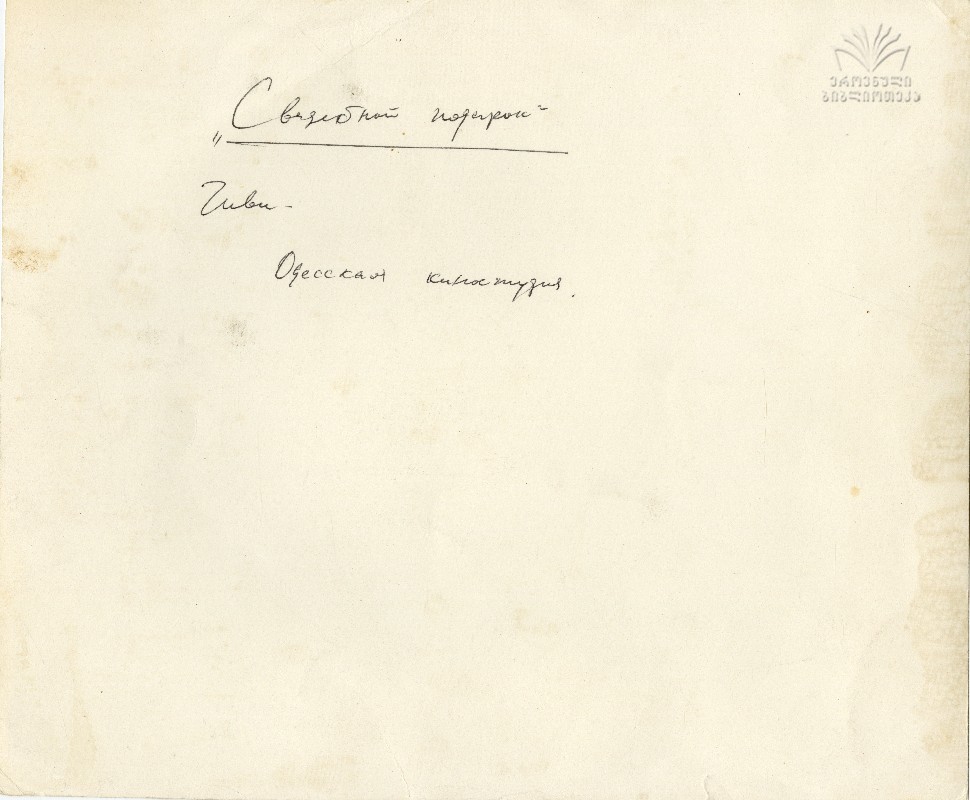 ეროვნული
ბიბლიოთეკა
„Свадебный подарок"
Гиви -
Одесская киностудия.